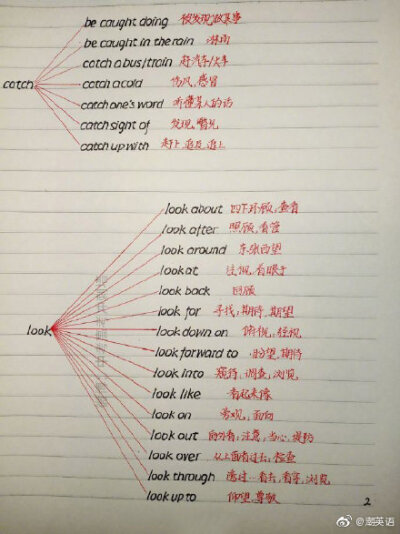 be caught doing 被发现做某事
be caught in the rain 淋雨
catch a bus/train 赶汽车/火车
catch
catch a cold 伤风,感冒
catch one's word 听懂某人的话
catch sight of 发现,瞥见
catch up with 赶上,追及,追上
look about 四下环顾,查看
look after 照顾,看管
look around 东张西望
look at 注视,着眼于
look back 回顾
look for 寻找,期待,期望
look
look down on 俯视,轻视
look forward to 盼望,期待
look into 窥探,调查,浏览
look like 看起来像
look on 旁观,面向
look out 向外看,注意,当心,提防
look over 从上面看过去,检查
look through 透过…看去,看穿,浏览
look up to 仰望,尊敬
2
@潮英语